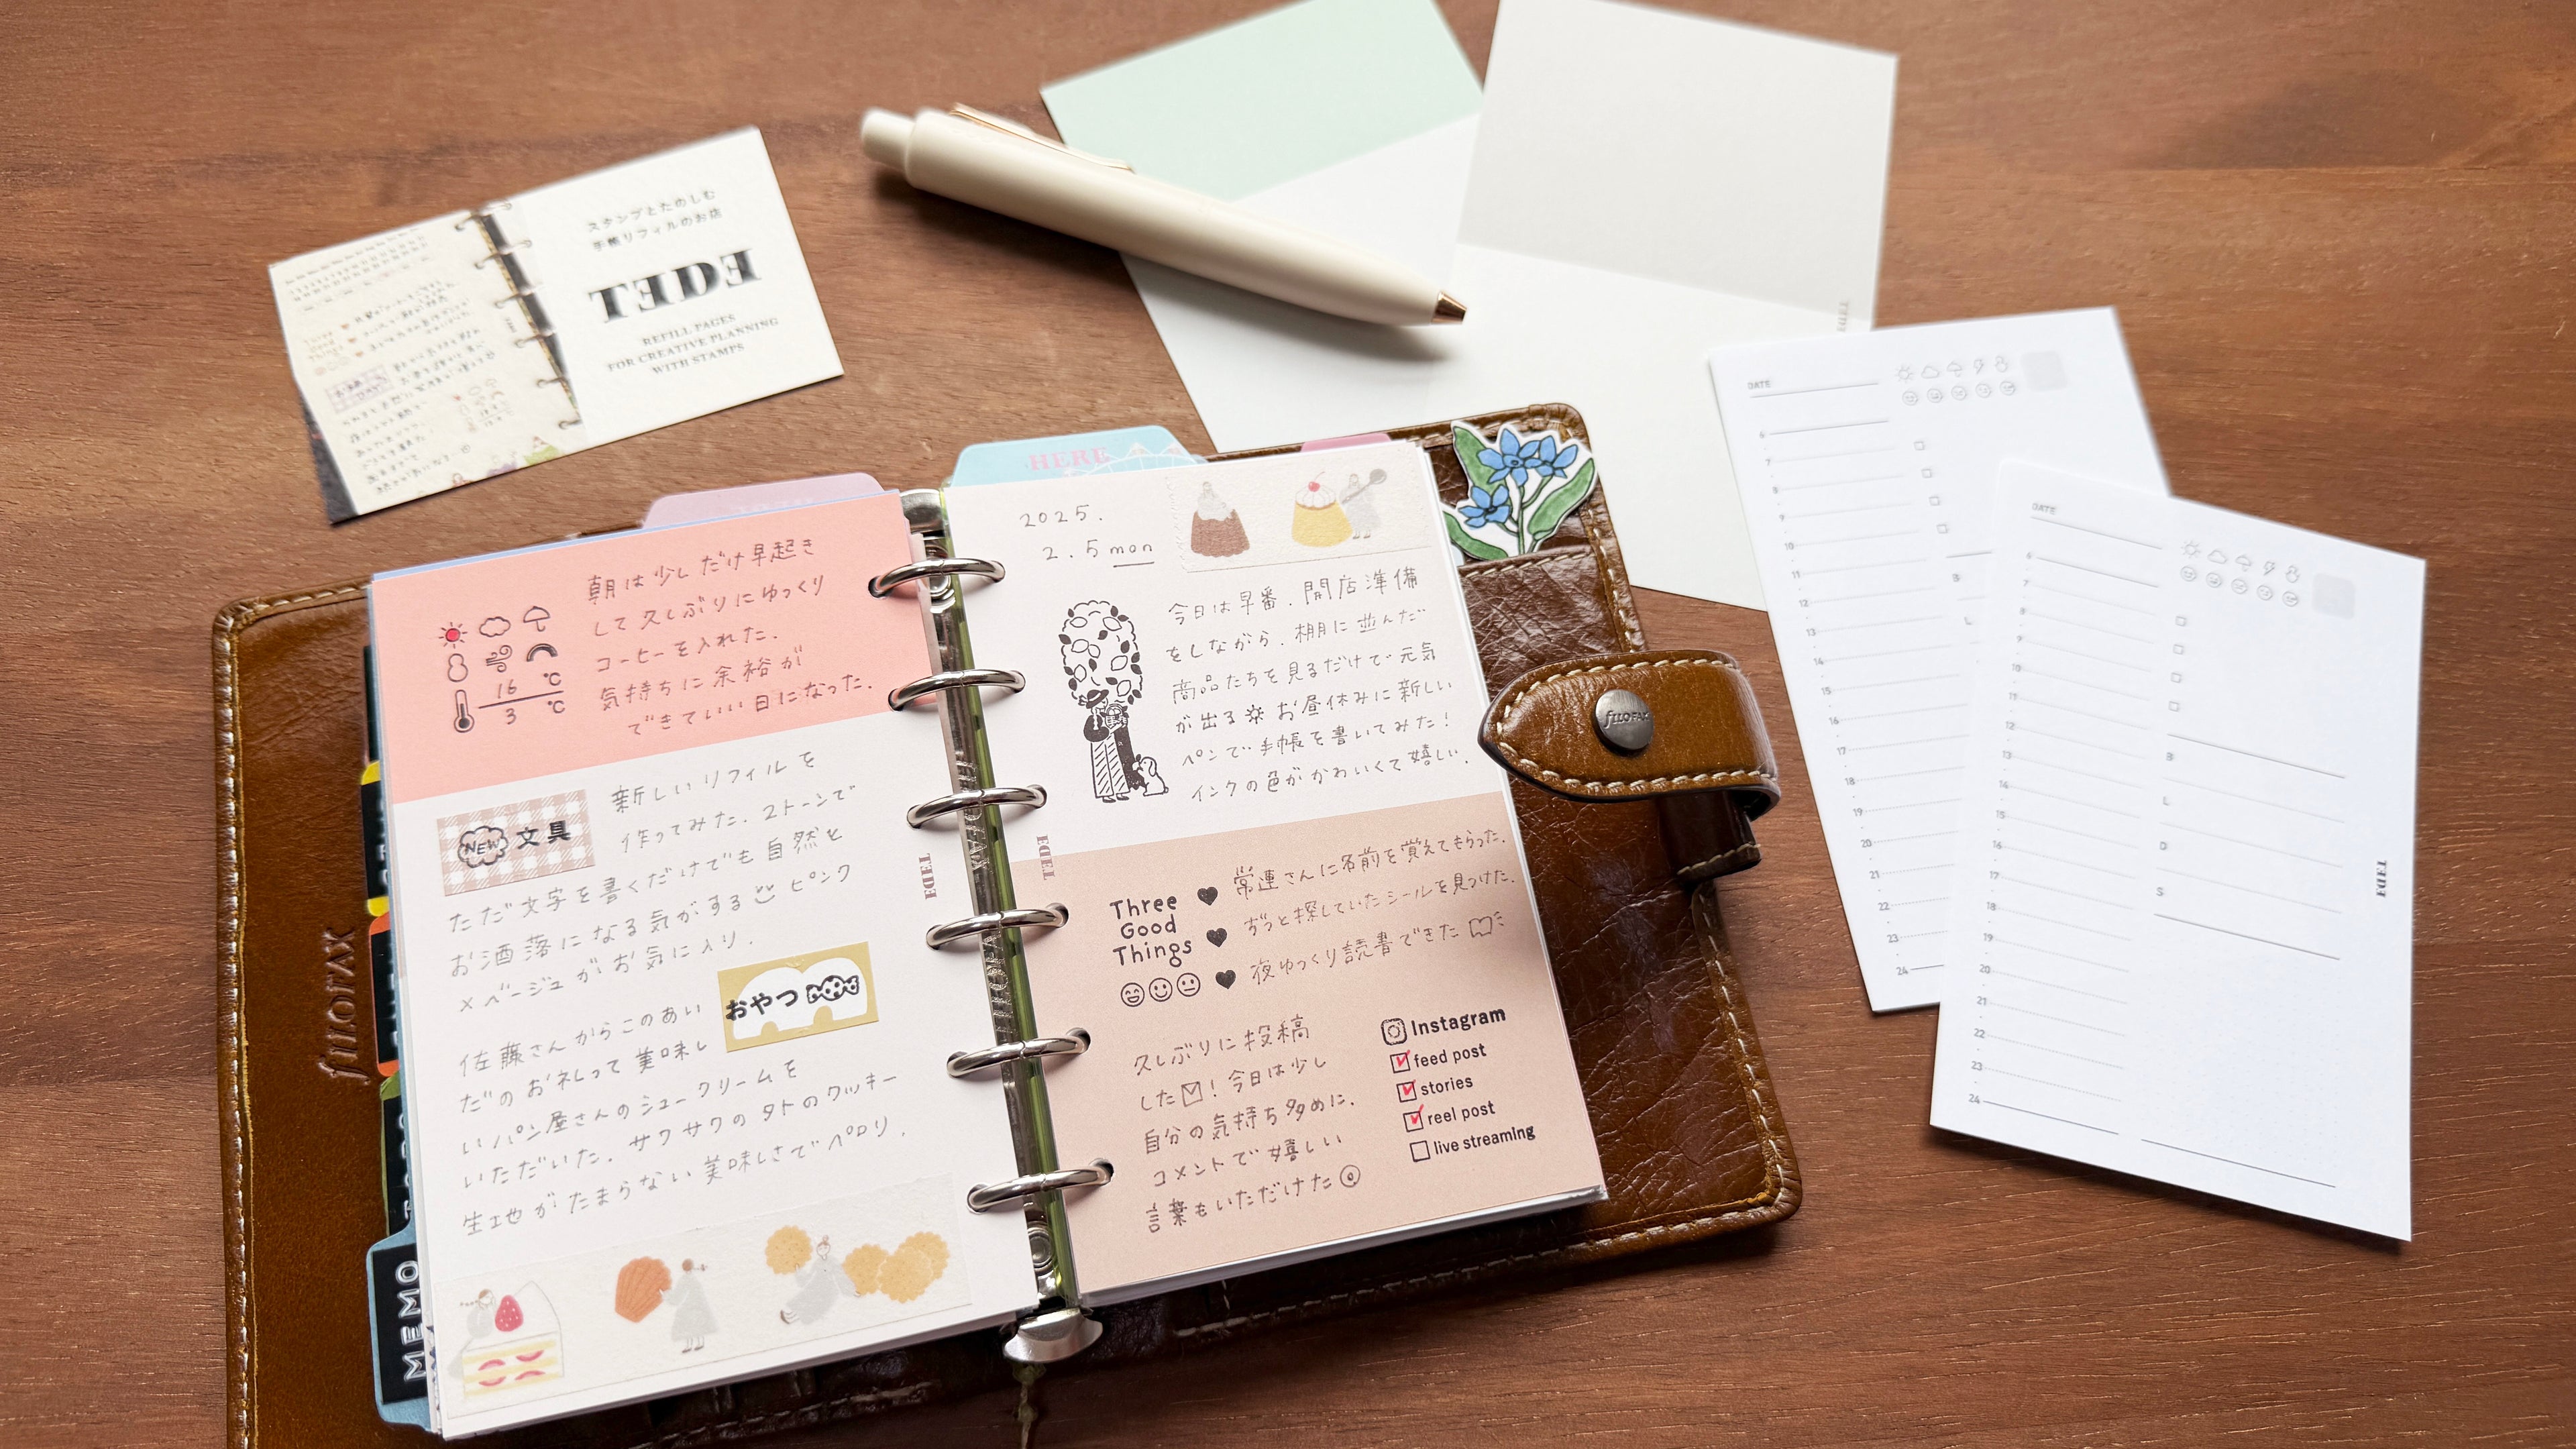 スタンプとたのしむ
手帳リフィルのお店
TEDE
REFILL PAGES
FOR CREATIVE PLANNING
WITH STAMPS
HERE
朝は少しだけ早起き
して久しぶりにゆっくり
コーヒーを入れた.
気持ちに余裕が
できていい日になった.
16 ℃
3 ℃
新しいリフィルを
作ってみた. 2トーンで
NEW 文具
ただ文字を書くだけでも自然と
お洒落になる気がする ピンク
×ベージュがお気に入り.
おやつ
佐藤さんからこのあい
だのお礼って美味し
いパン屋さんのシュークリームを
いただいた. サクサクの外のクッキー
生地がたまらない美味しさでペロリ.
TEDE
FILOFAX
MEMO
2025.
2.5 mon
今日は早番. 開店準備
をしながら. 棚に並んだ
商品たちを見るだけで元気
が出る お昼休みに新しい
ペンで手帳を書いてみた!
インクの色がかわいくて嬉しい.
TEDE
Three
Good
Things
常連さんに名前を覚えてもらった.
ずっと探していたシールを見つけた.
夜ゆっくり読書できた
久しぶりに投稿
した! 今日は少し
自分の気持ち多めに.
コメントで嬉しい
言葉もいただけた
Instagram
feed post
stories
reel post
live streaming
FILOFAX
TEDE
DATE
6
7
8
9
10
11
12
13
14
15
16
17
18
19
20
21
22
23
24
B
L
DATE
6
7
8
9
10
11
12
13
14
15
16
17
18
19
20
21
22
23
24
B
L
D
S
TEDE